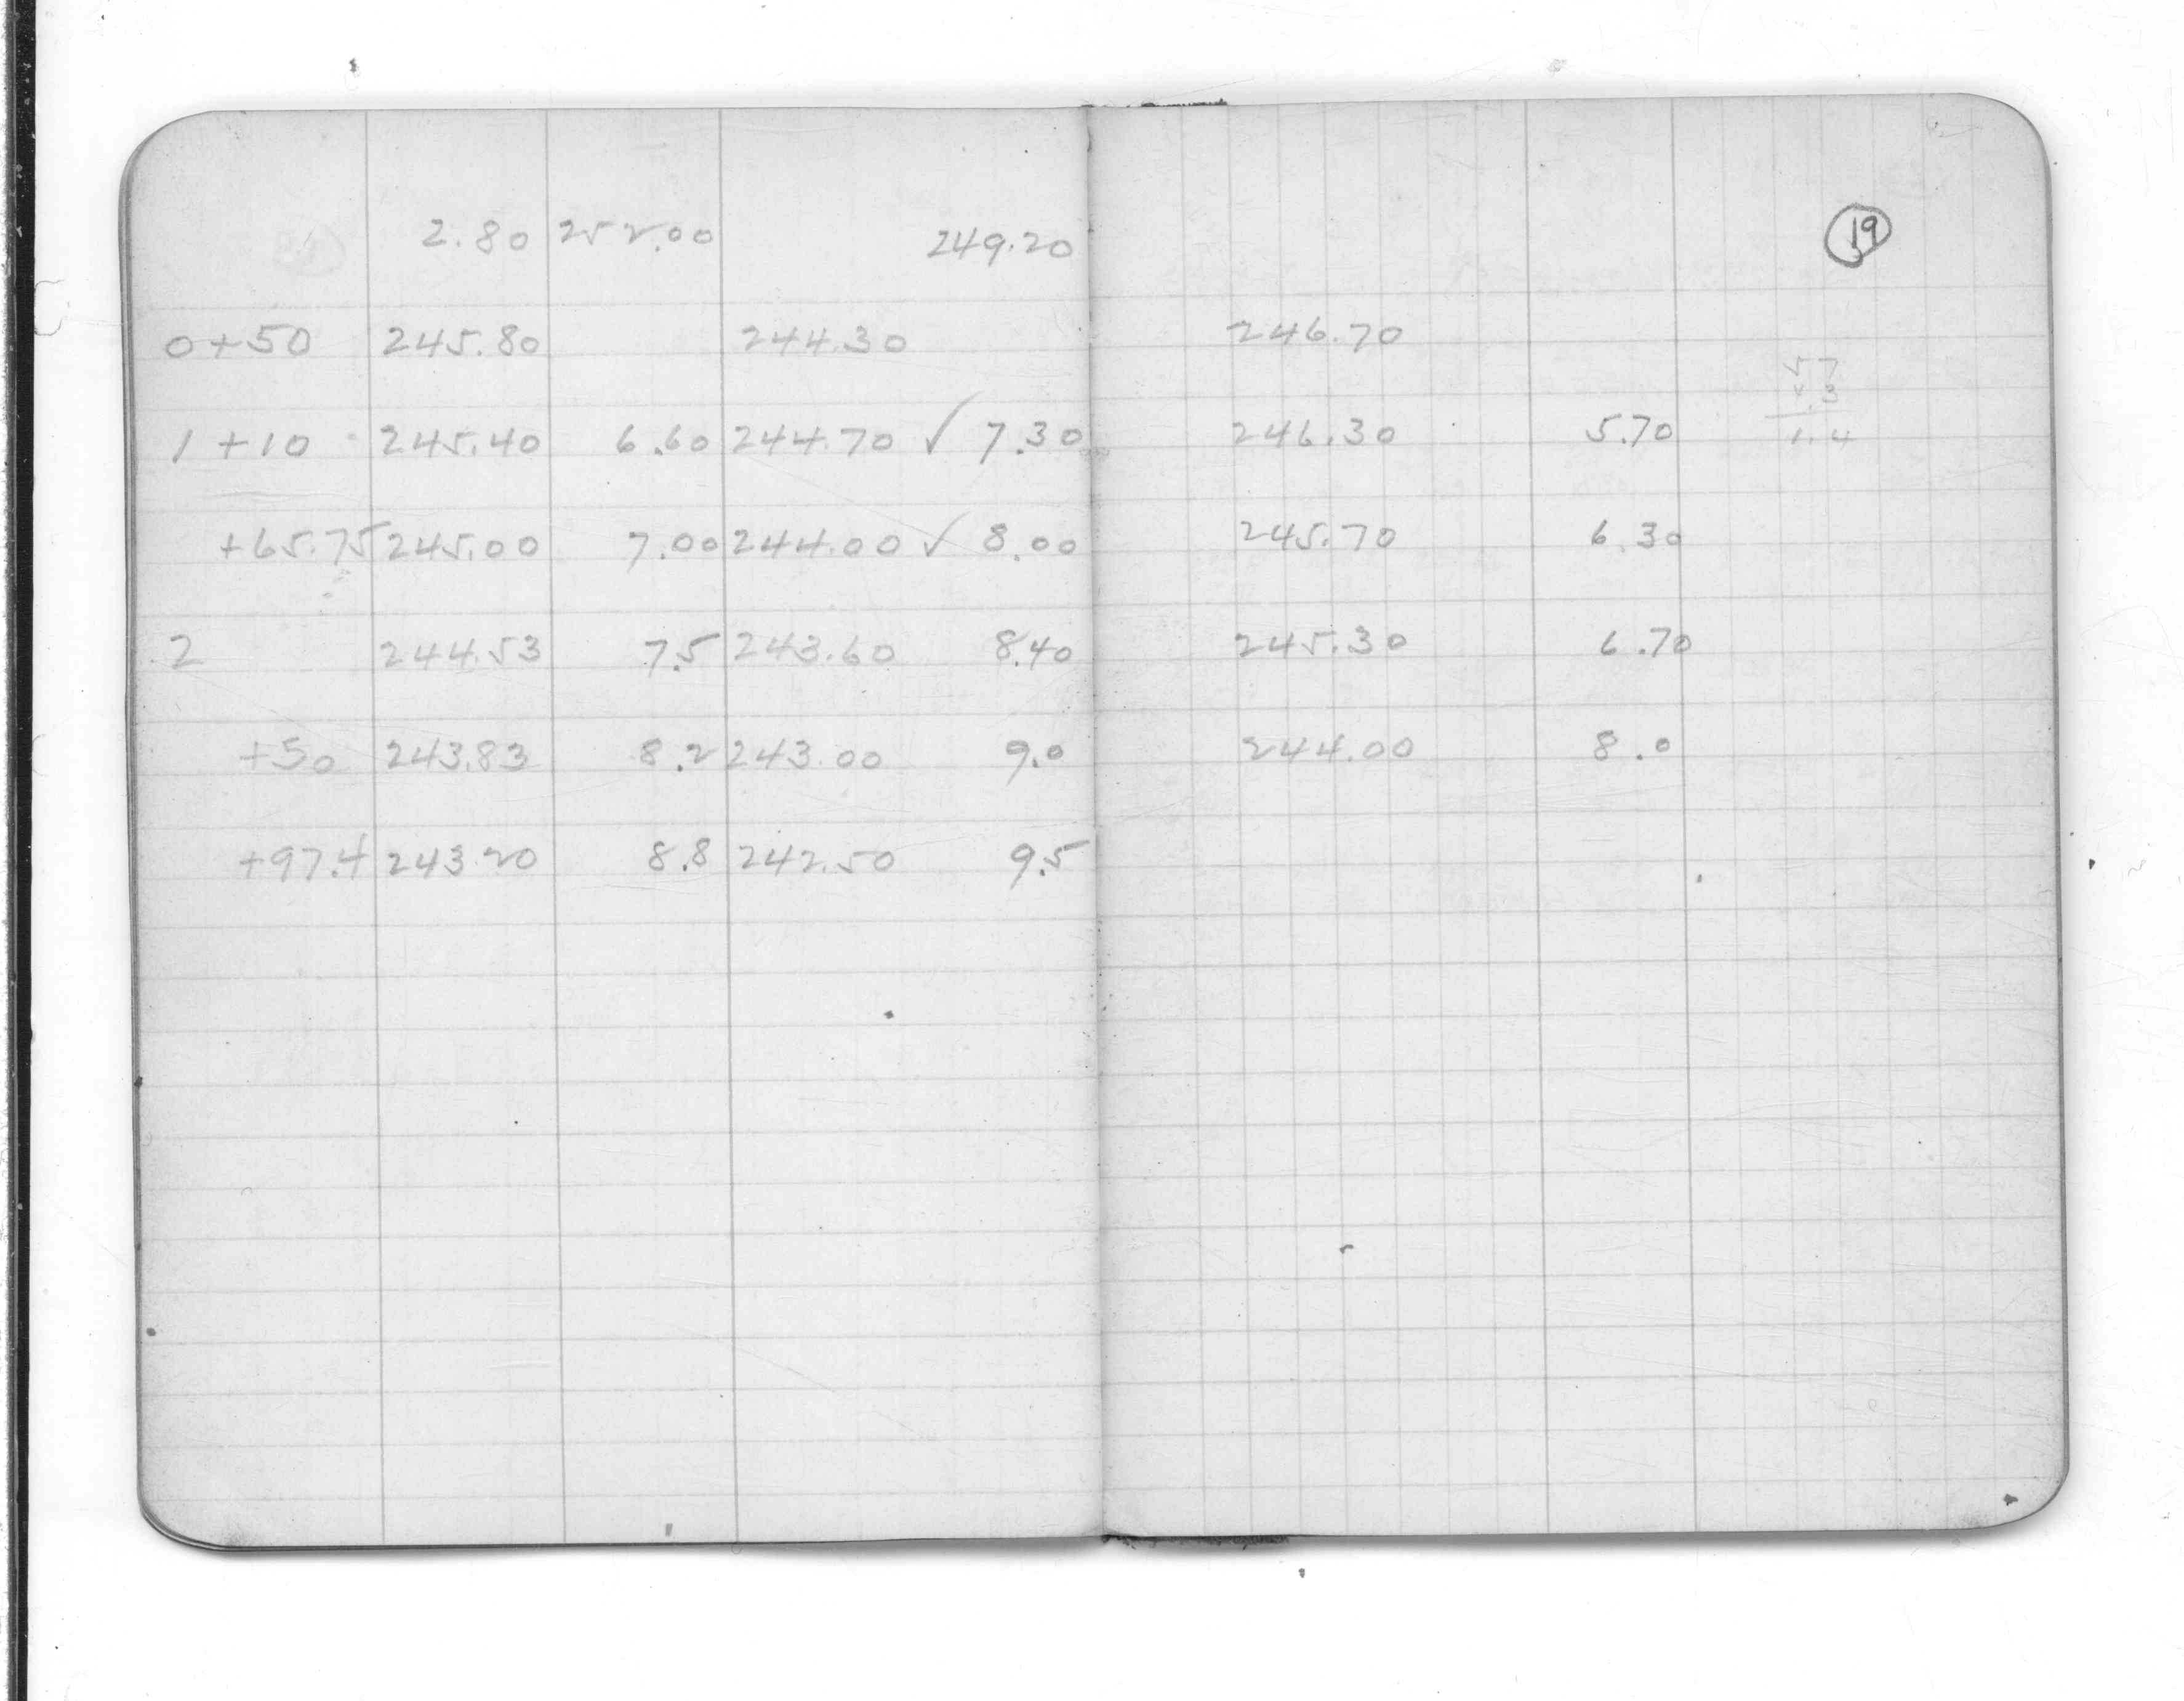 2.80 252.00 249.20 19
0+50 245.80 244.30 246.70
57
4.3
1 + 10 245.40 6.60 244.70 ✓ 7.30 246.30 5.70 1.4
+65.75 245.00 7.00 244.00 ✓ 8.00 245.70 6.30
2 244.53 7.5 243.60 8.40 245.30 6.70
+50 243.83 8.2 243.00 9.0 244.00 8.0
+97.4 243.20 8.8 242.50 9.5